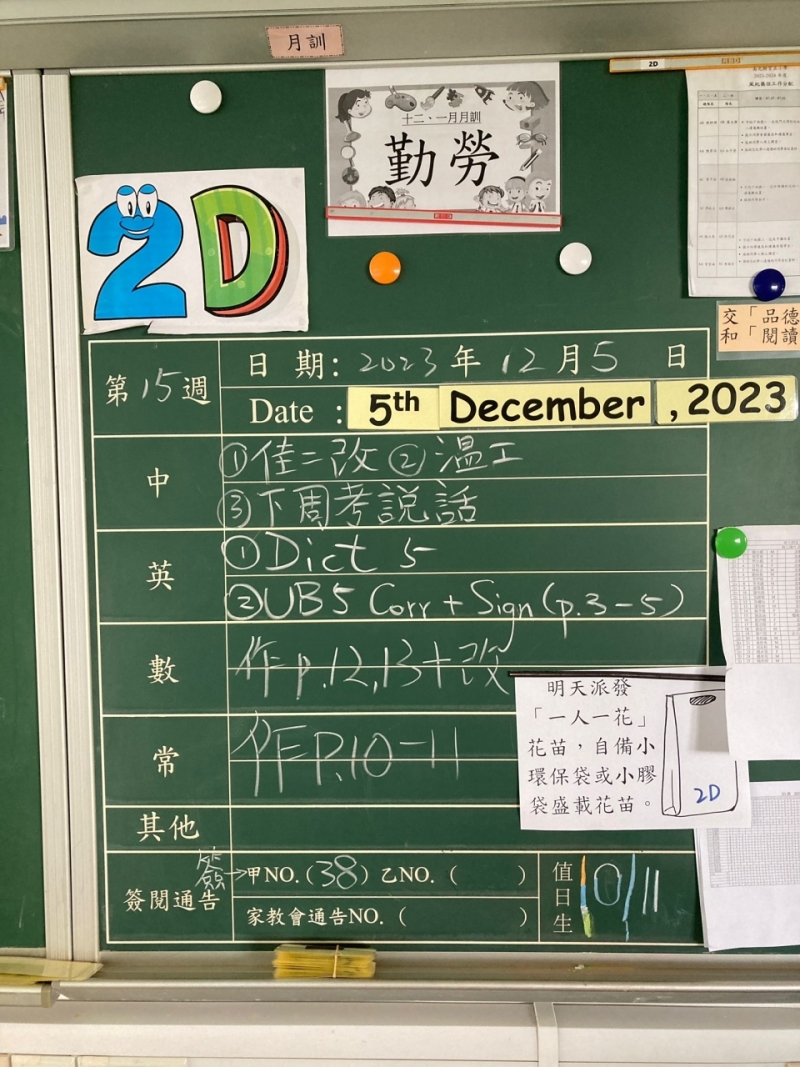 月訓
十二、一月月訓
勤勞
2D
2D
交「品德
和「閱讀
第15週
日期：2023年12月5日
Date : 5th December , 2023
中
①佳二改 ②溫工
③下周考説話
英
①Dict 5
②UB5 Corr + Sign (p.3-5)
數
作p.12,13+改
常
作P.10-11
明天派發
「一人一花」
花苗，自備小
環保袋或小膠
袋盛載花苗。
2D
其他
簽閱通告
簽→甲NO.(38) 乙NO. ( )
家教會通告NO. ( )
值日生
10/11